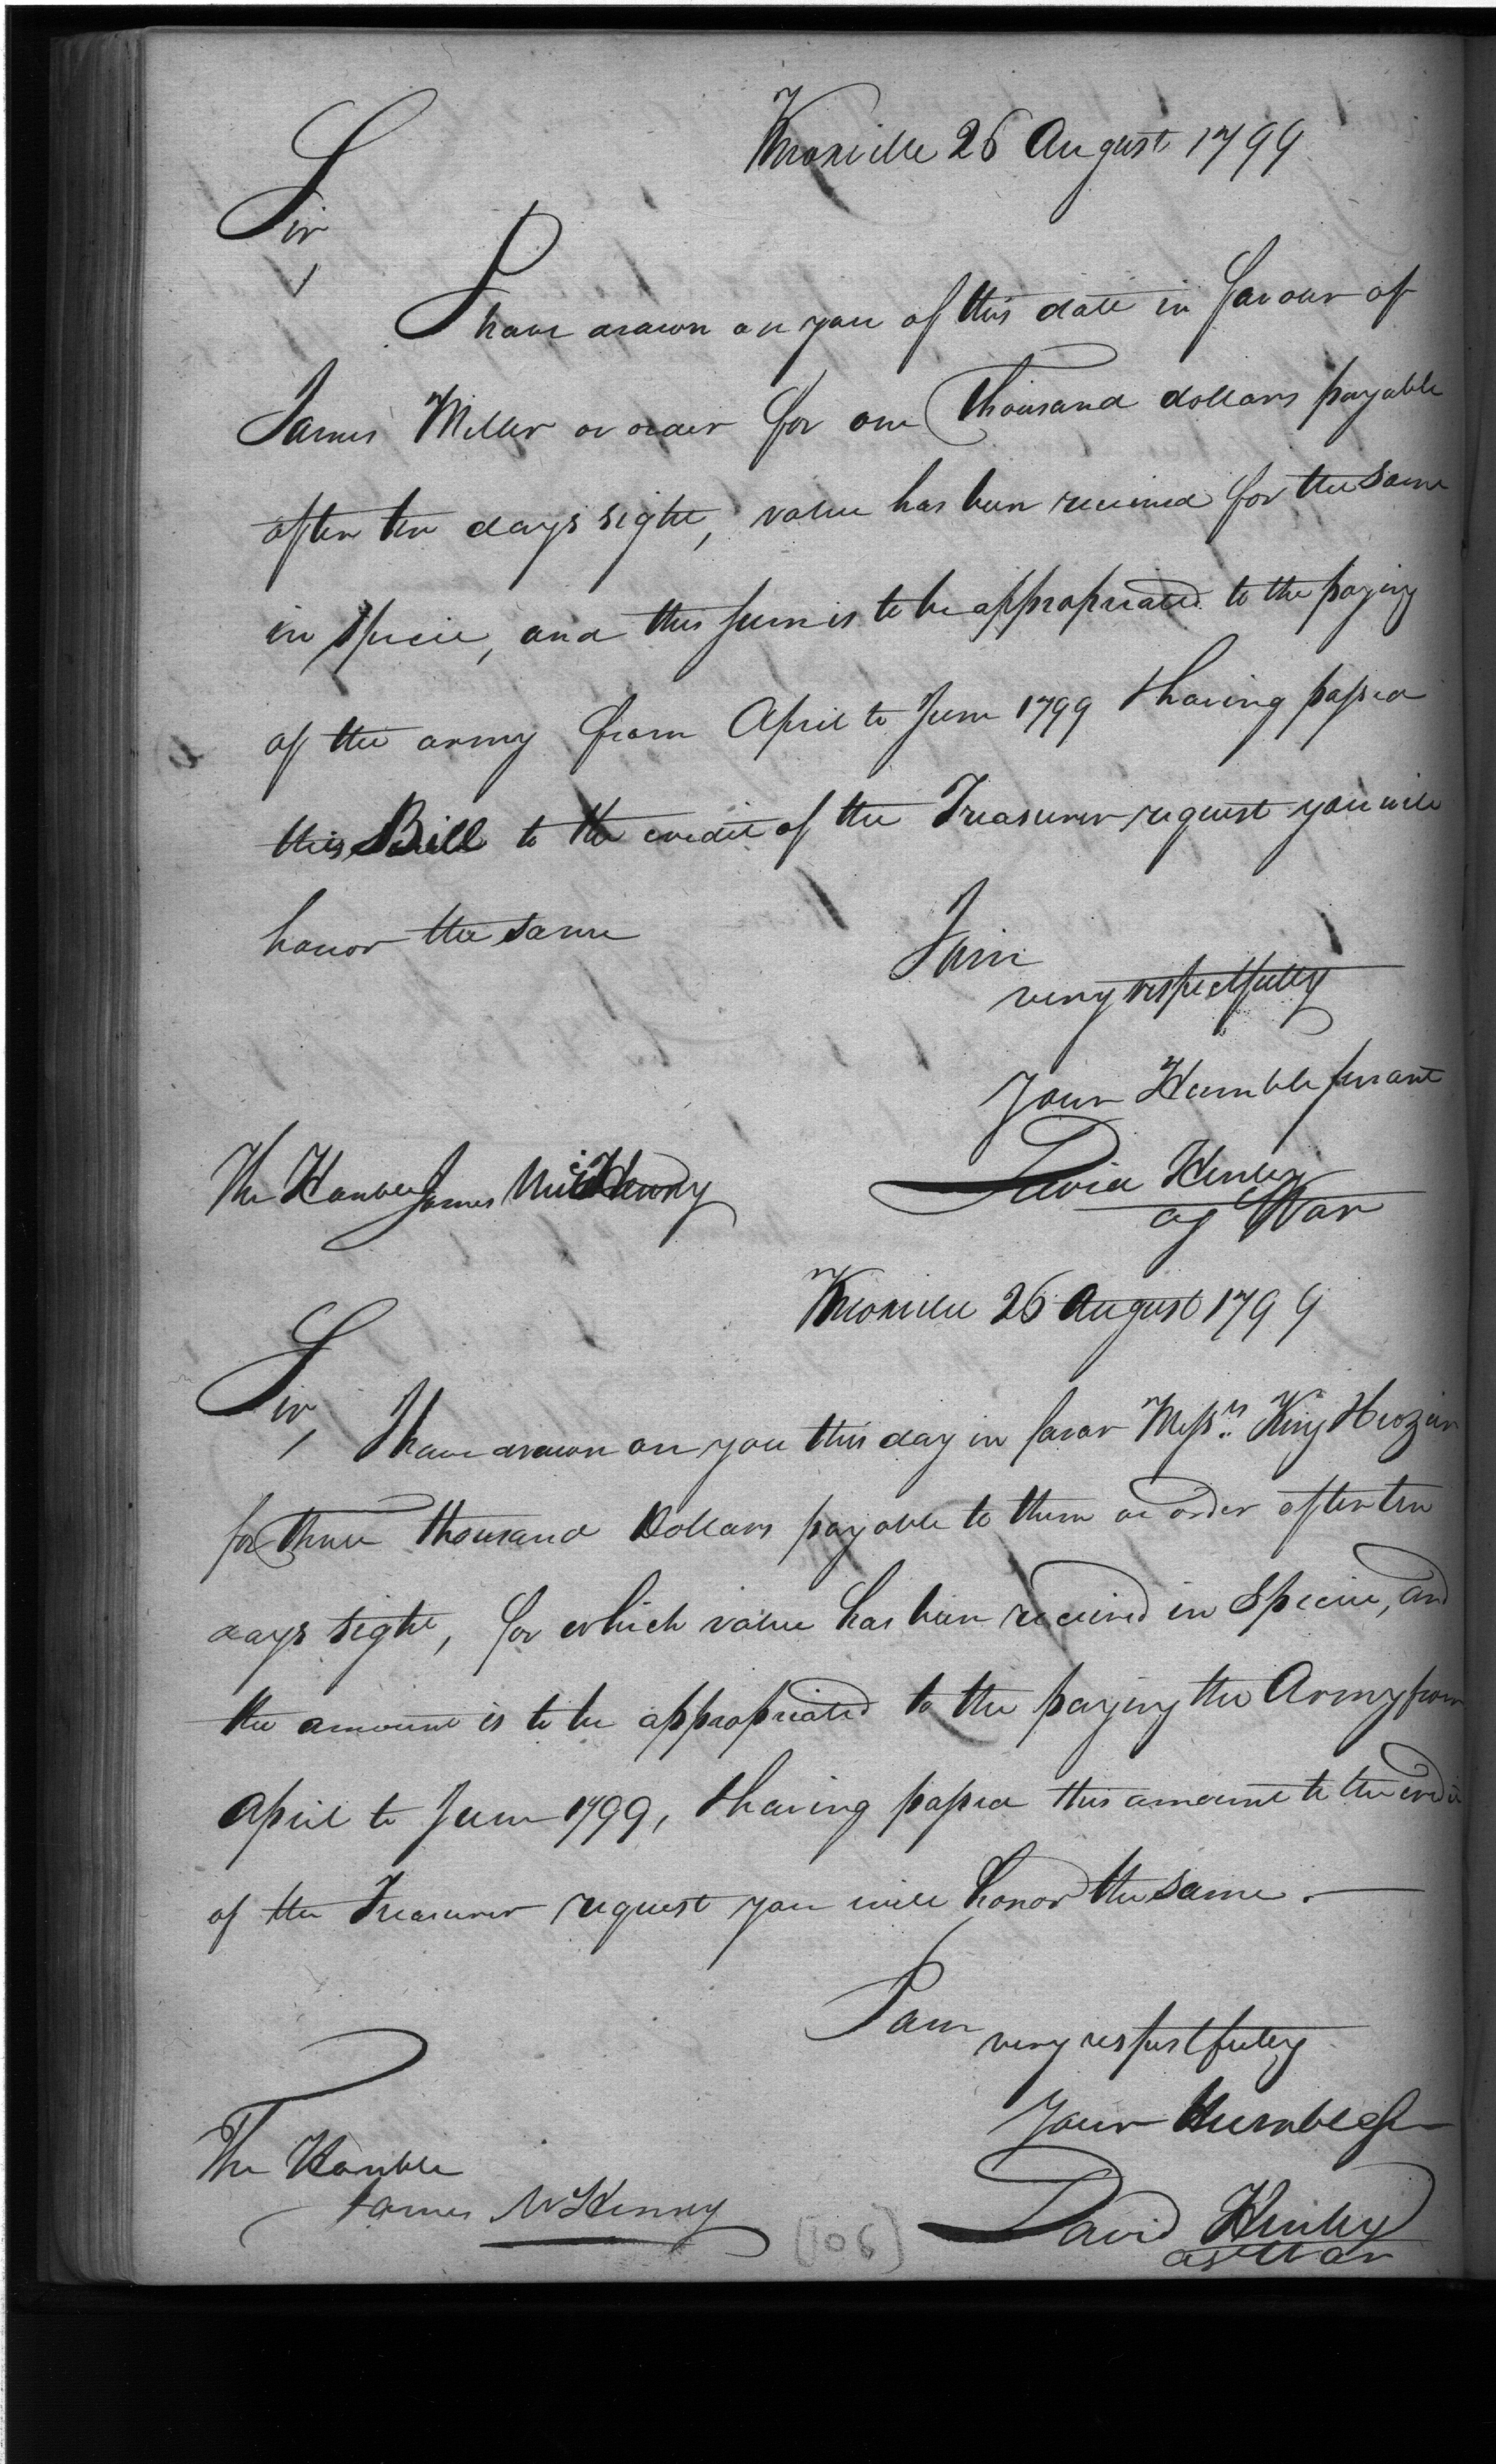 Knoxville 26 August 1799
Sir
I have drawn on you of this date in favour of
James Miller or order for one Thousand dollars payable
after ten days sight, value has been received for the same
in specie, and this sum is to be appropriated to the paying
of the army from April to June 1799 & having passed
this Bill to the credit of the Treasurer request you will
honor the same
I am
very respectfully
Your Humble servant
The Honble James McHenry
David Henley
ag War
Knoxville 26 August 1799
Sir,
I have drawn on you this day in favor Messrs. King &
for Three thousand Dollars payable to them or order after ten
days sight, for which value has been received in Specie, and
the amount is to be appropriated to the paying the Army from
April to June 1799, & having passed this amount to the credit
of the Treasurer request you will honor the same.
I am
very respectfully
Your Humble St
The Honble
James McHenry
David Henley
ag War
(106)